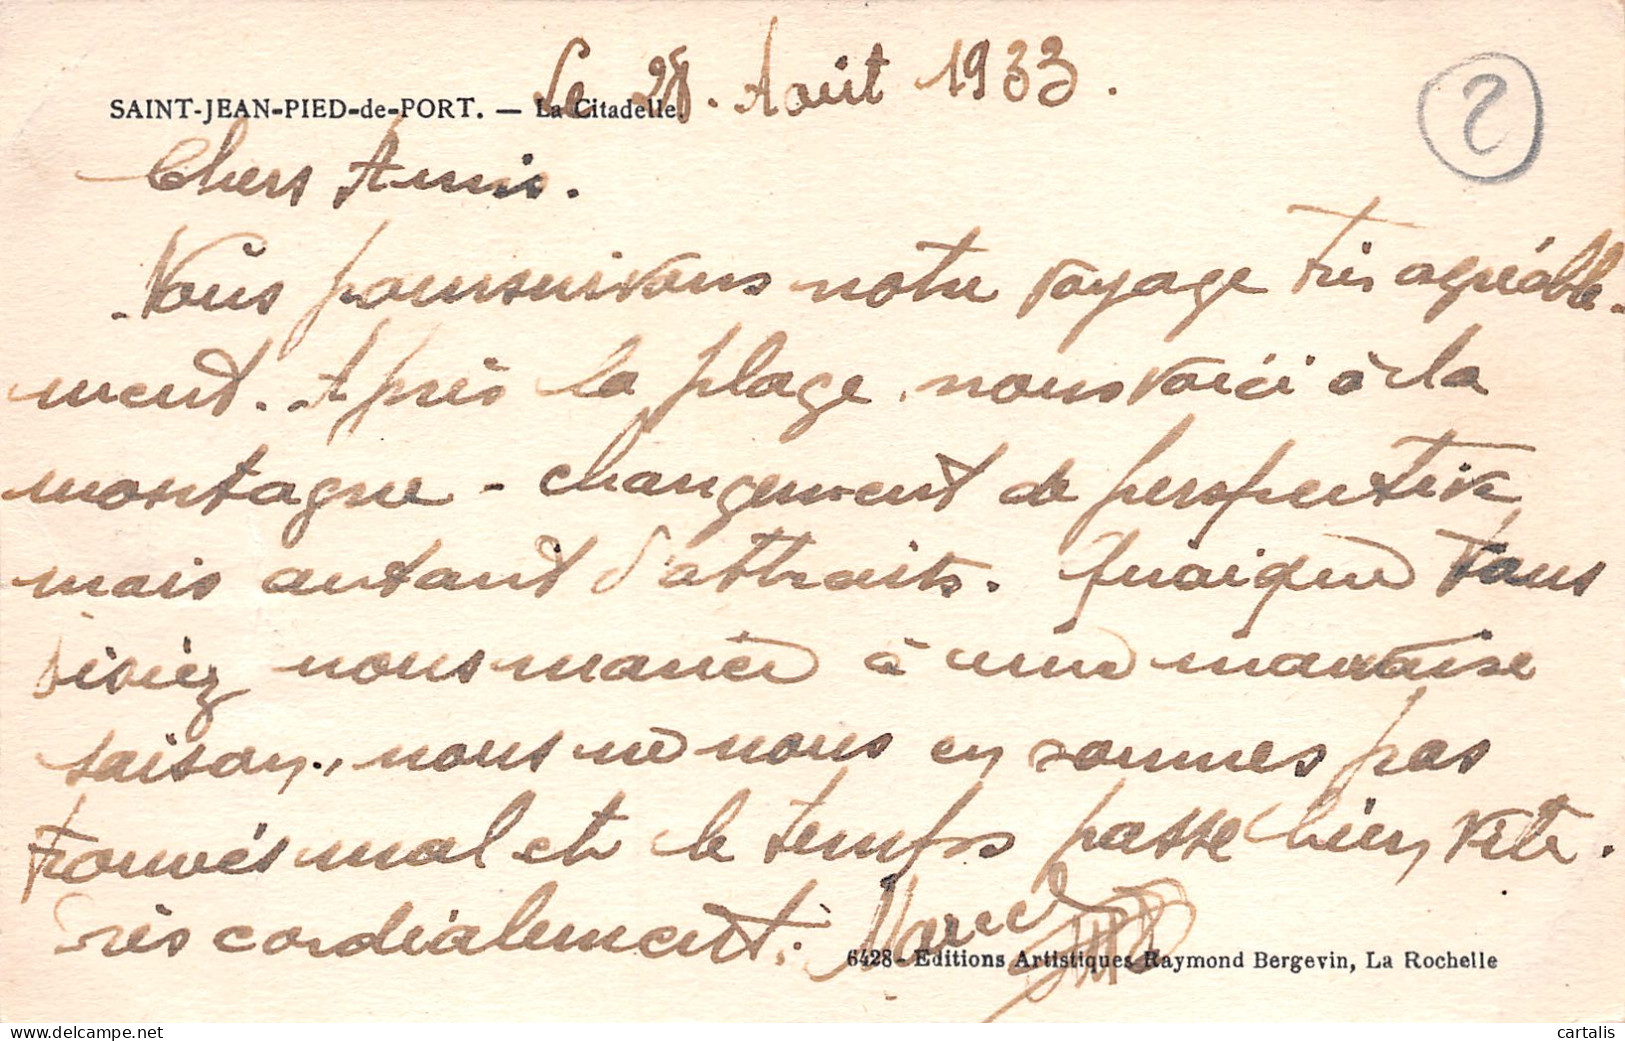 Le 28. Août 1933.
SAINT-JEAN-PIED-de-PORT. — La Citadelle.
2
Chers Amis.
Nous poursuivons notre voyage très agréable-
ment. Après la plage, nous voici à la
montagne - changement de perspective
mais autant d'attraits. Quoique vous
nous à une mauvaise
saison, nous ne nous en sommes pas
trouvés mal et le temps passe bien vite.
Très cordialement. Marcel
6428 - Editions Artistiques Raymond Bergevin, La Rochelle
cartalis
www.delcampe.net